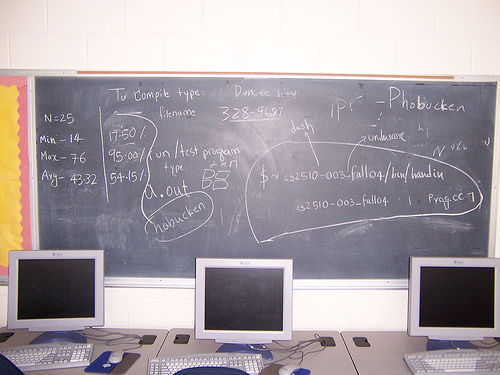 To compile type:
filename
328-9687
iP
- Phobucken
N=25
Min - 14
17.50%
Max - 76
95.00%
Avg - 43.32
54.15%
run/test program
type:
a.out
BS
Phobucken
dash
underscore
$ ~ cs2510-003_fall04/bin/handin
cs2510-003_fall04 1 Prog.CC 7